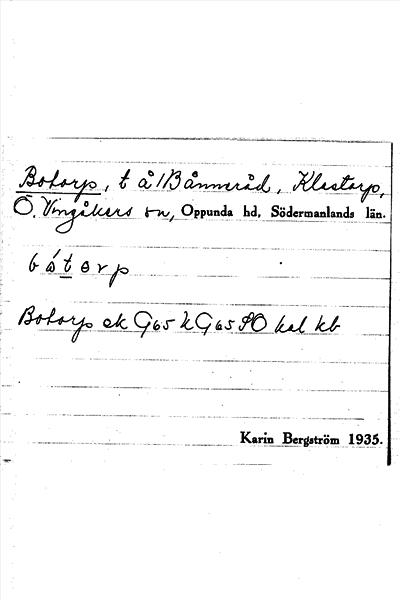 Botorp, t å 1/1 Bånneråd, Klastorp,
Ö. Vingåkers sn, Oppunda hd, Södermanlands län.
bótorp
Botorp ek G65 k G65 SO kal kb
Karin Bergström 1935.